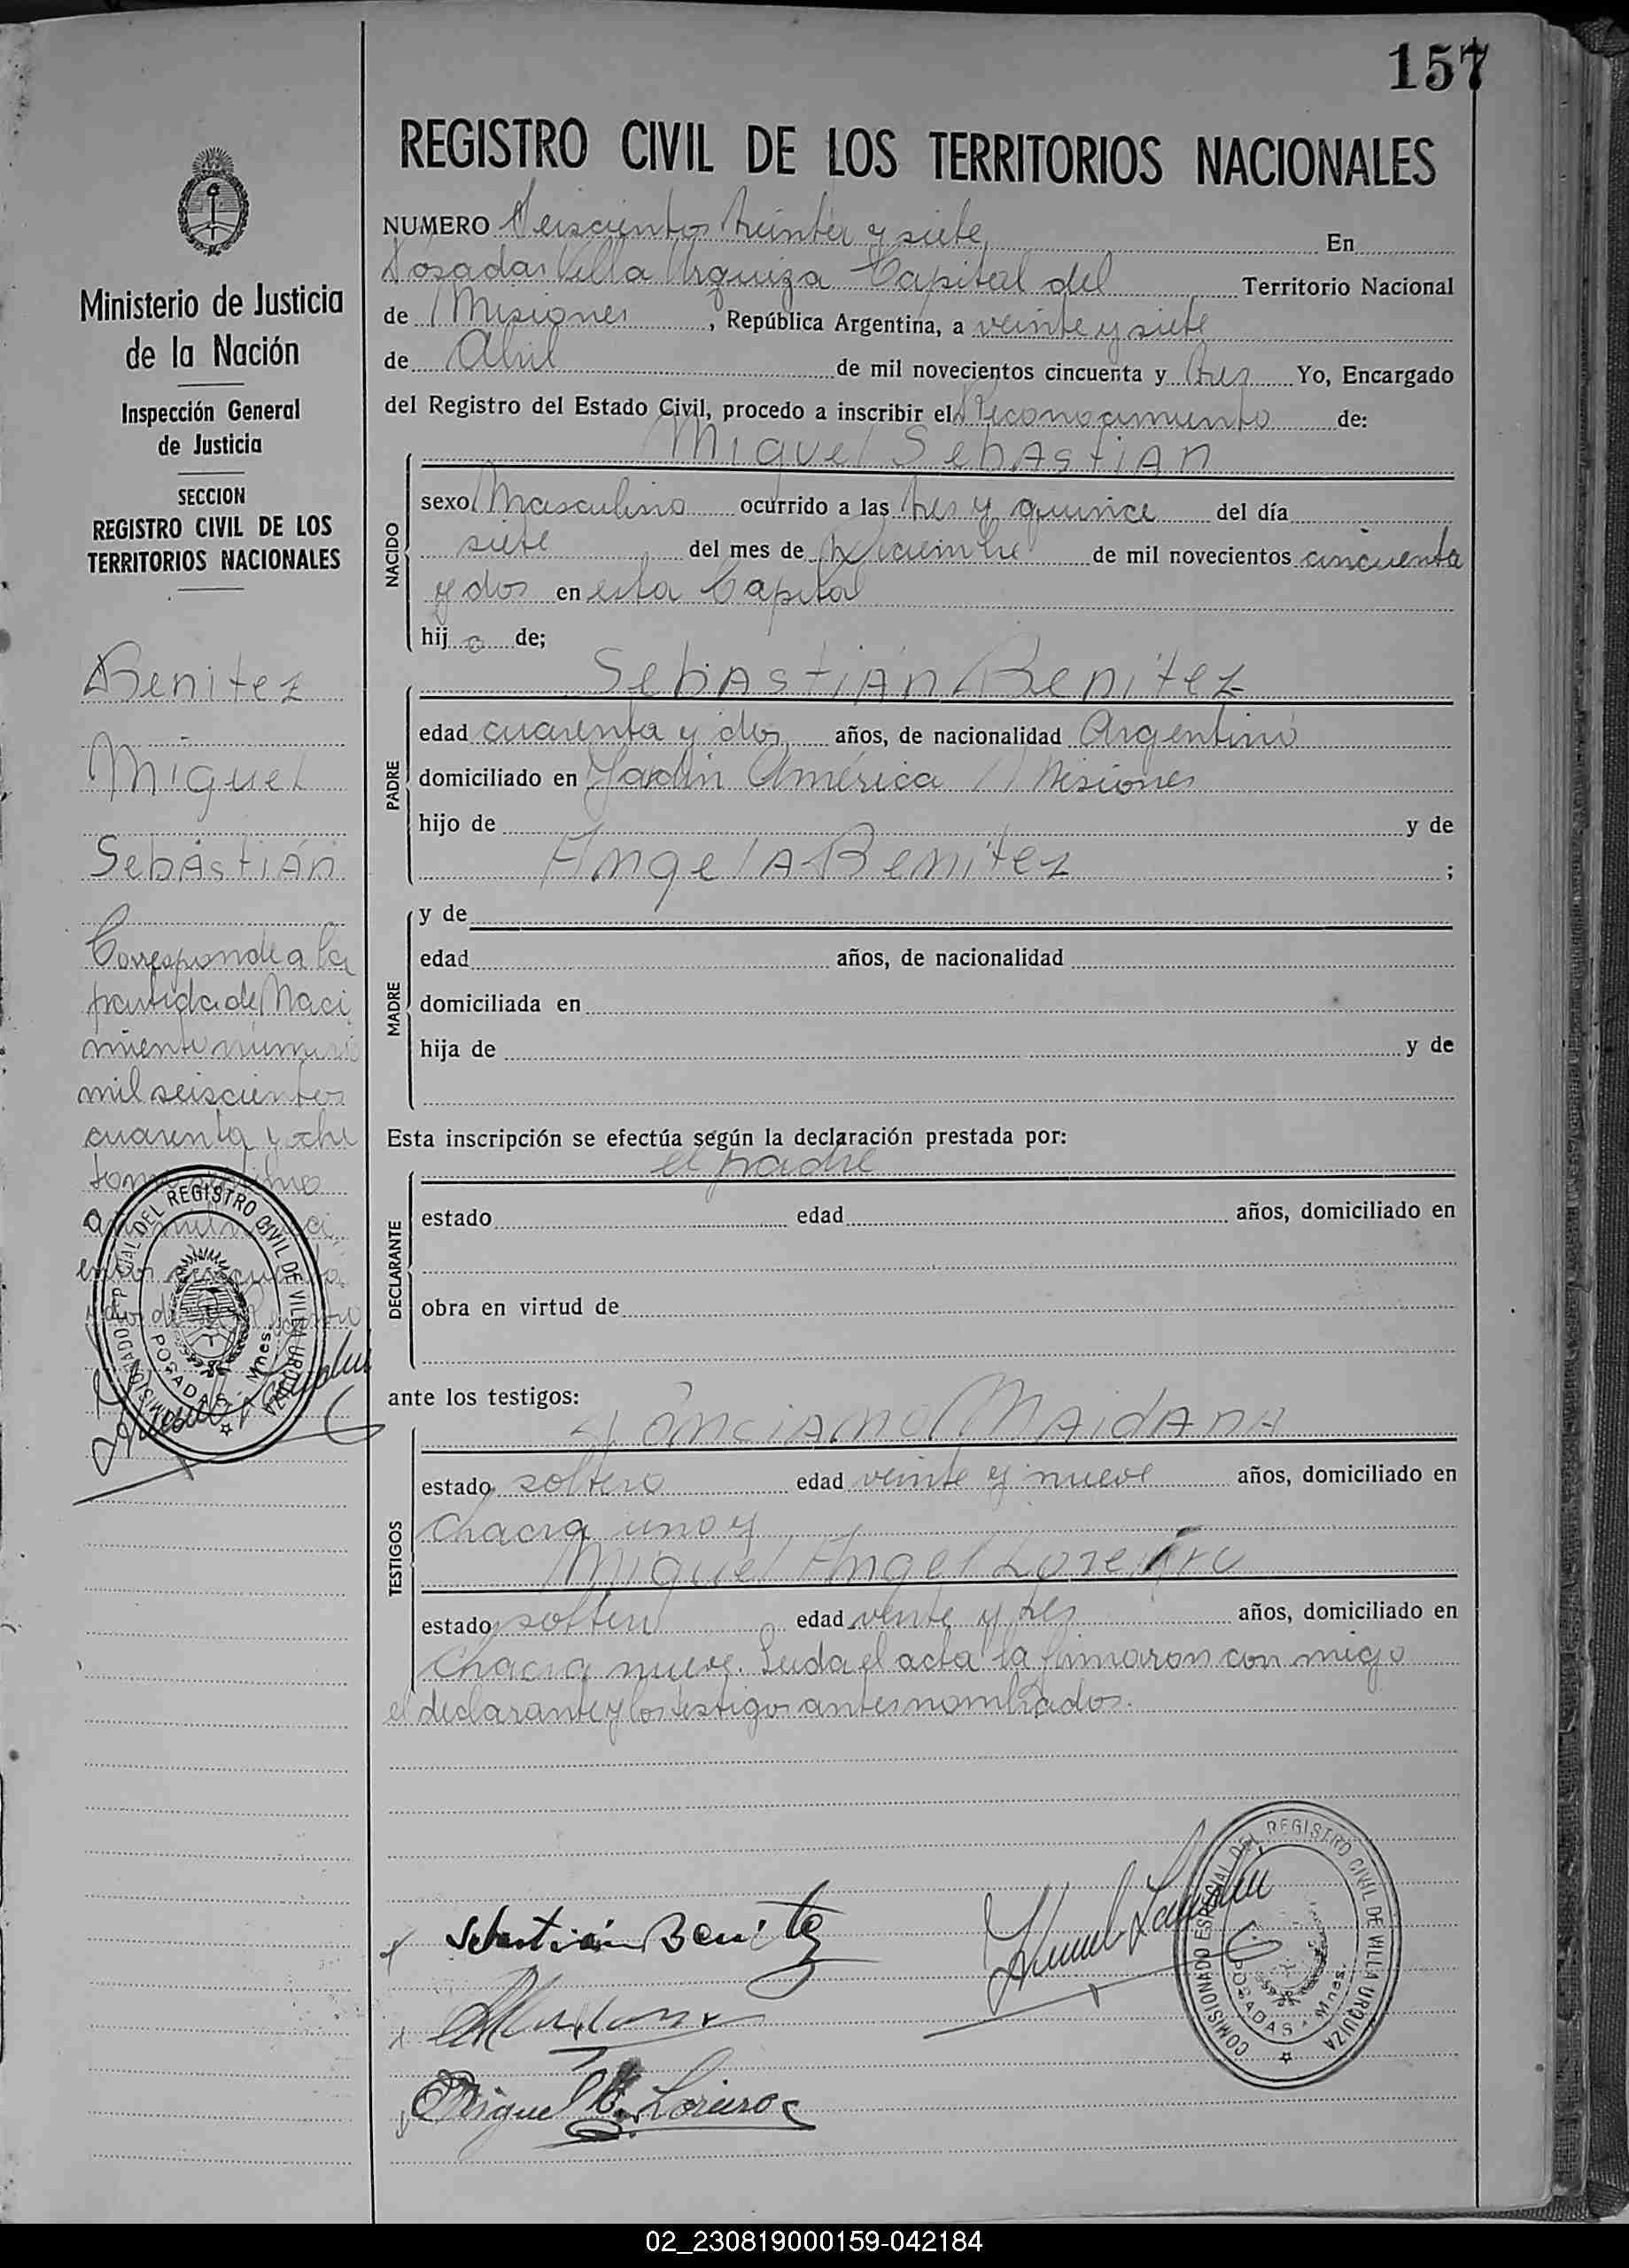 157
REGISTRO CIVIL DE LOS TERRITORIOS NACIONALES
Ministerio de Justicia
de la Nación
Inspección General
de Justicia
SECCION
REGISTRO CIVIL DE LOS
TERRITORIOS NACIONALES
Benitez
Miguel
Sebastián
Corresponde a la
partida de Naci
miento número
mil seiscientos
cuarenta y ocho
tomo
NUMERO Seiscientos treinta y siete En
Posadas Villa Urquiza Capital del Territorio Nacional
de Misiones, República Argentina, a veinte y siete
de Abril de mil novecientos cincuenta y tres Yo, Encargado
del Registro del Estado Civil, procedo a inscribir el Reconocimiento de:
Miguel Sebastian
NACIDO
sexo Masculino ocurrido a las tres y quince del día
siete del mes de Diciembre de mil novecientos cincuenta
y dos en esta Capital
hijo de;
Sebastián Benitez
PADRE
edad cuarenta y dos años, de nacionalidad Argentino
domiciliado en Jardin América Misiones
hijo de y de
Angela Benitez ;
MADRE
y de
edad años, de nacionalidad
domiciliada en
hija de y de
Esta inscripción se efectúa según la declaración prestada por:
el padre
DECLARANTE
estado edad años, domiciliado en
obra en virtud de
ante los testigos:
Ponciano Maidana
TESTIGOS
estado soltero edad veinte y nueve años, domiciliado en
chacra uno y
Miguel Angel Loreiro
estado soltero edad veinte y tres años, domiciliado en
chacra nueve. Leida el acta la firmaron con migo
el declarante y los testigos antes nombrados.
Sebastián Benitez
Miguel A. Loreiro
COMISIONADO ESPECIAL DEL REGISTRO CIVIL DE VILLA URQUIZA
POSADAS - Mnes.
COMISIONADO ESPECIAL DEL REGISTRO CIVIL DE VILLA URQUIZA
POSADAS - Mnes.
02_230819000159-042184